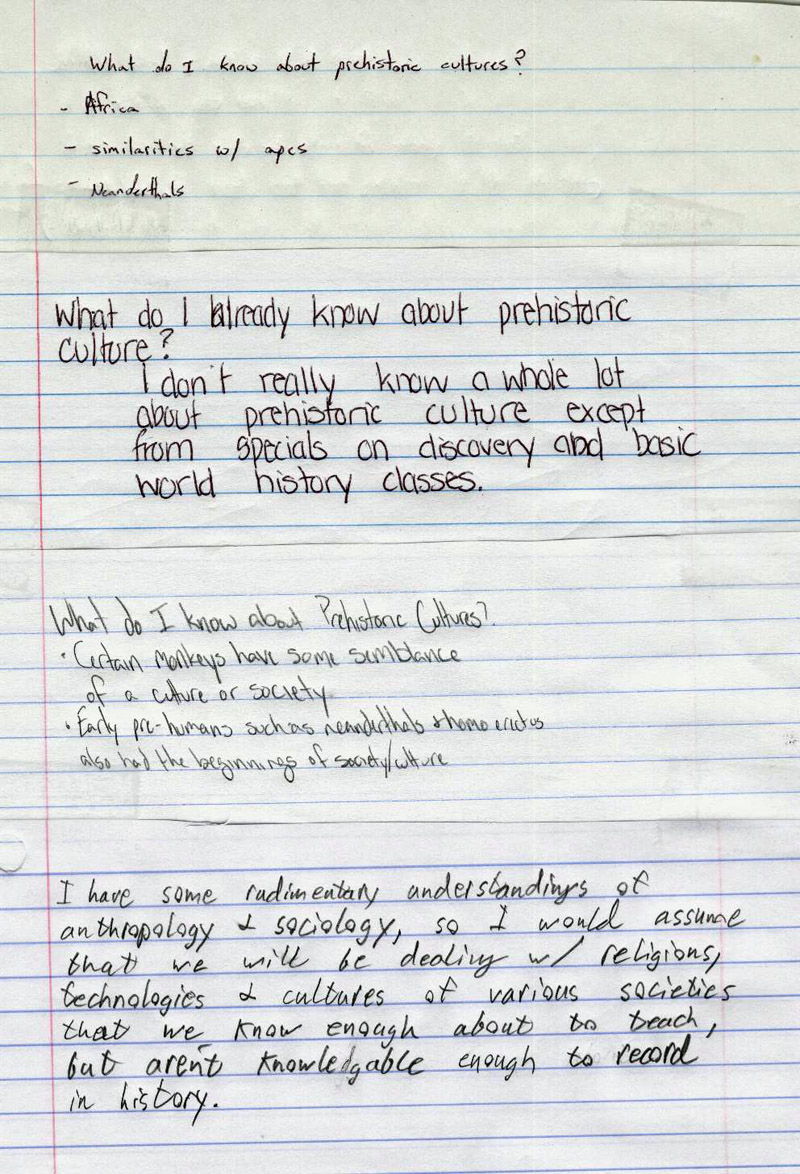 What do I know about prehistoric cultures?
- Africa
- similarities w/ apes
- Neanderthals
What do I already know about prehistoric
culture?
I don't really know a whole lot
about prehistoric culture except
from specials on discovery and basic
world history classes.
What do I know about Prehistoric Cultures?
• Certain monkeys have some semblance
of a culture or society
• Early pre-humans such as neanderthals & homo erectus
also had the beginnings of society/culture
I have some rudimentary understandings of
anthropology & sociology, so I would assume
that we will be dealing w/ religions,
technologies & cultures of various societies
that we know enough about to teach,
but aren't knowledgable enough to record
in history.